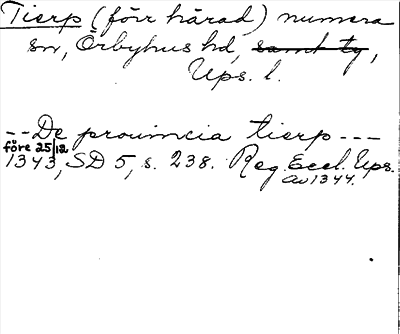 Tierp (förr härad) numera
sn, Örbyhus hd, samt tg,
Ups. l.
--De prouincia tierp---
före 25/12
1343, SD 5, s. 238. Reg. Eccl. Ups.
av 1344.